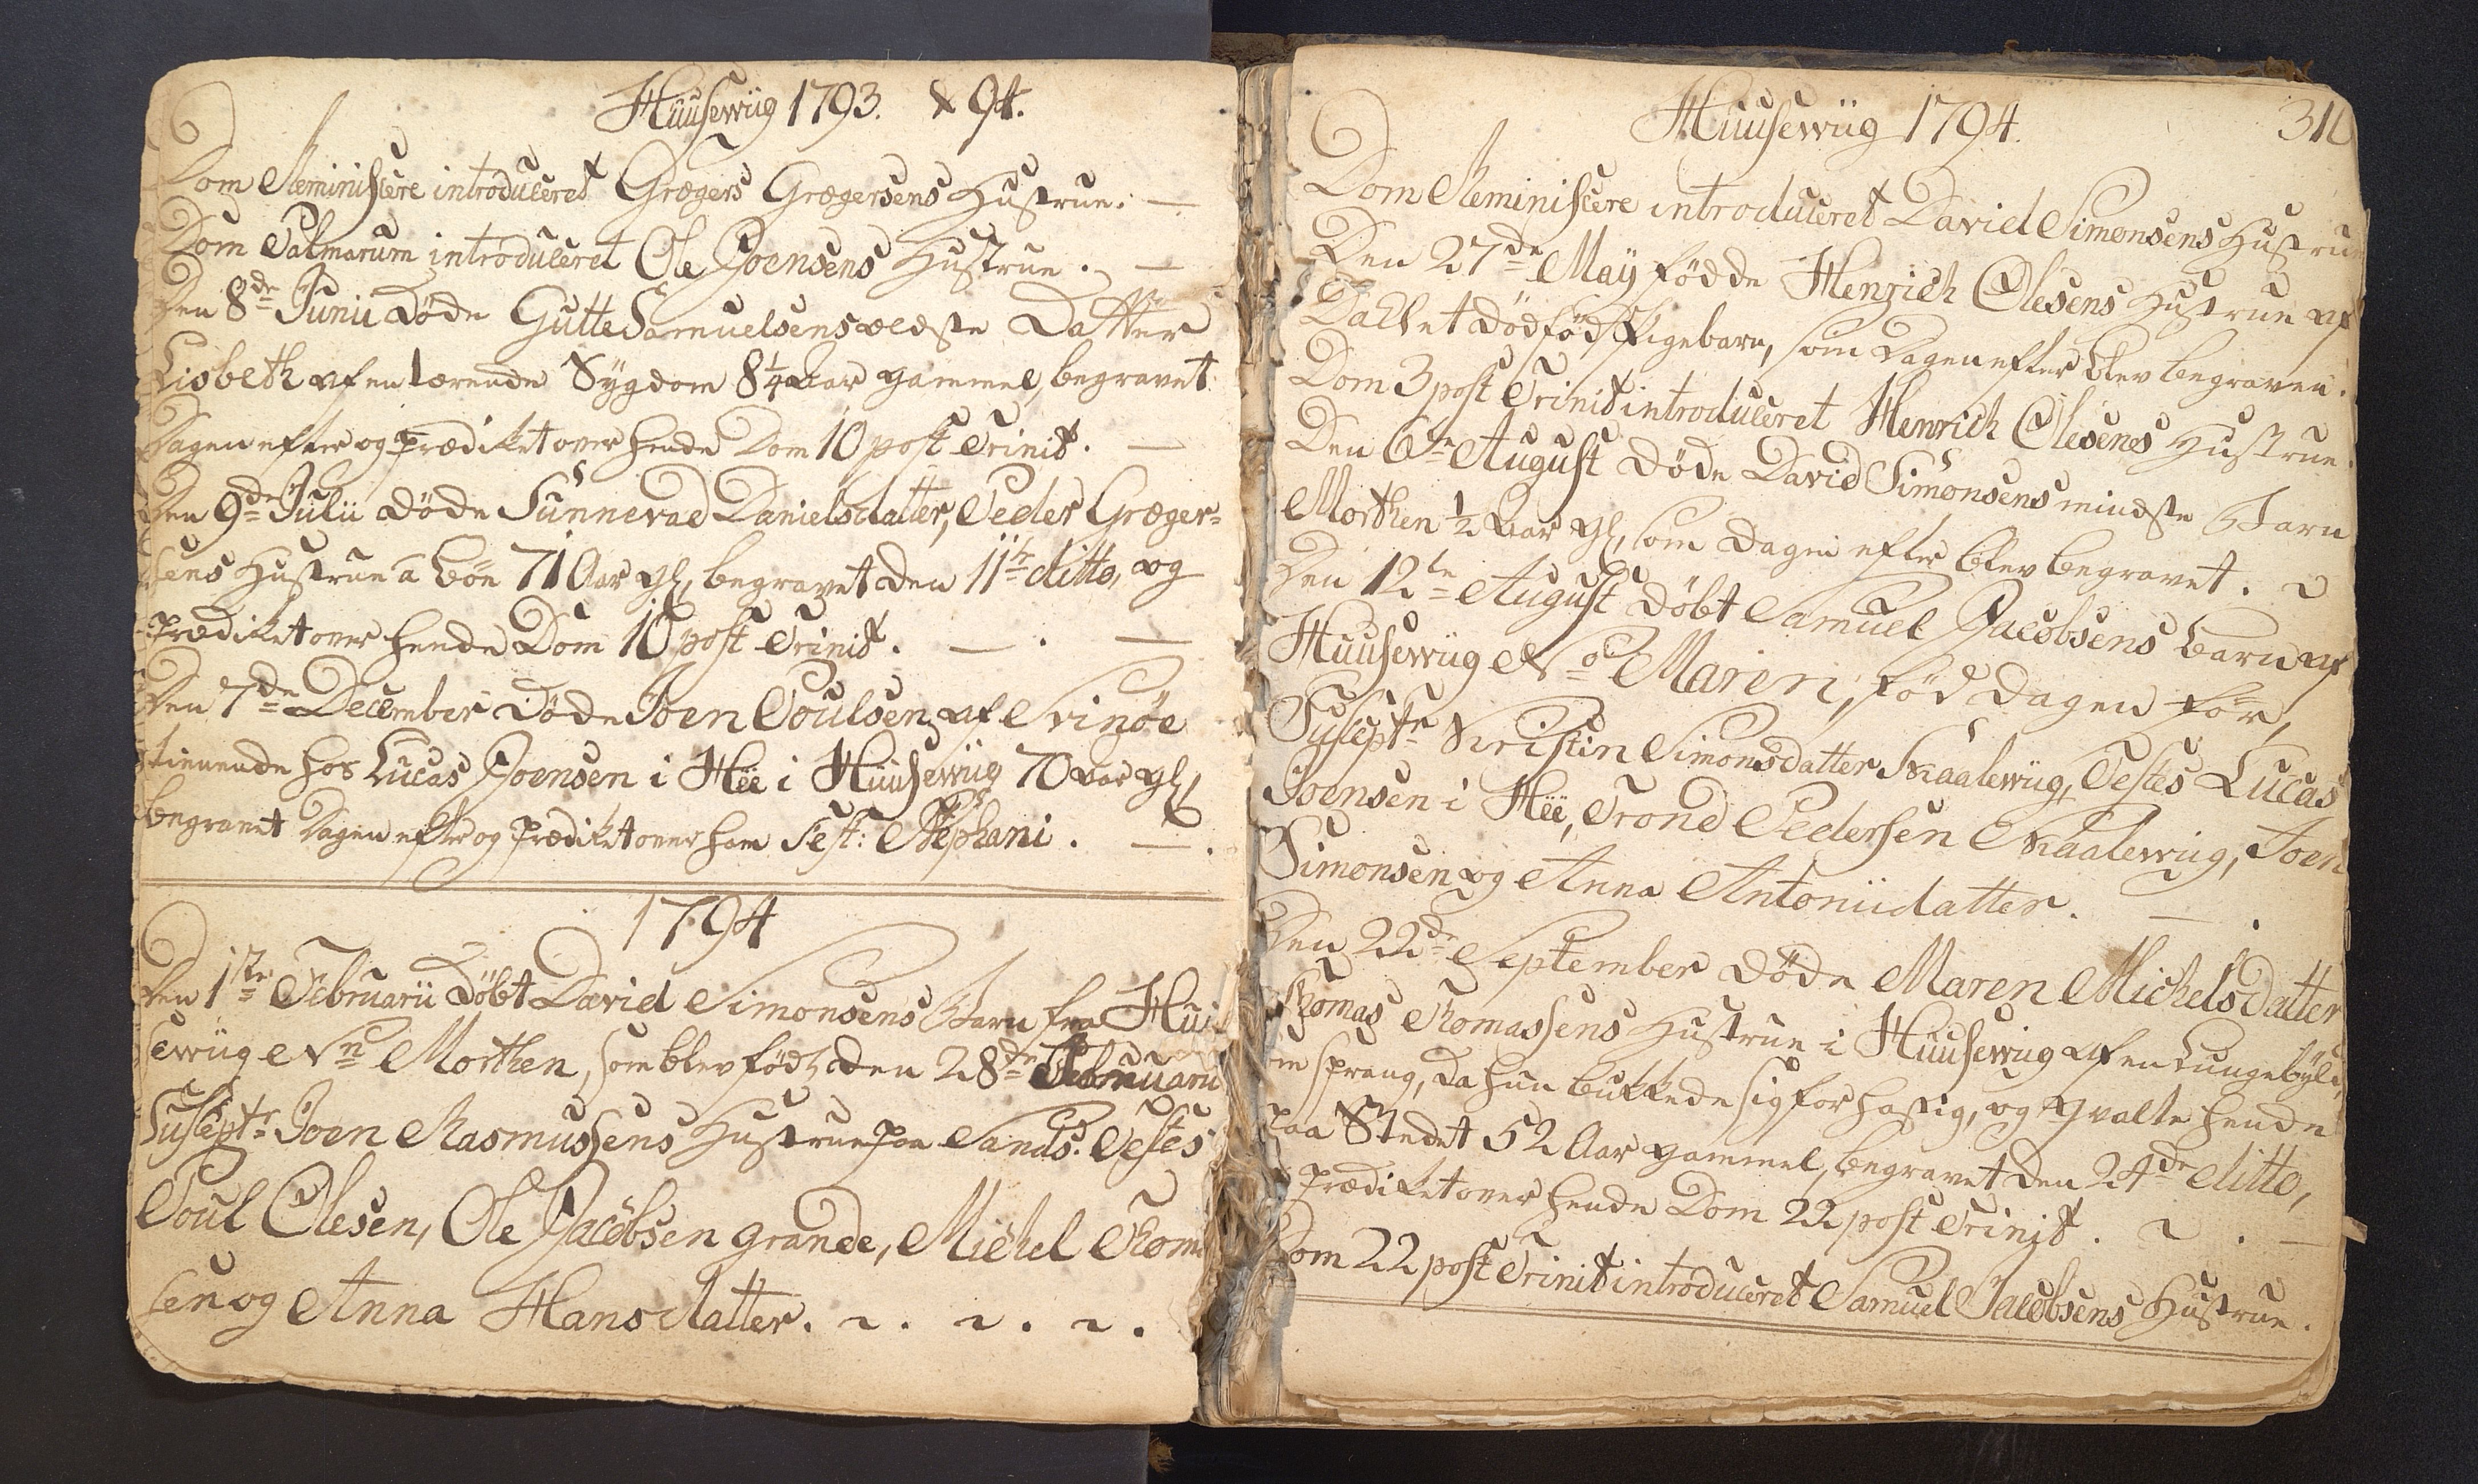 Huusewiig 1793. & 94.
Dom Reminiscere introduceret Grægers Grægersens Hustrue. —
Dom Palmarum introduceret Ole Joensens Hustrue. —
Den 8de Junii døde Gutte Samuelsens ældste Datter
Lisbeth af en tærende Sygdom 8¼ Aar gammel, begravet
Dagen efter og prædiket over hende Dom 10 post Trinit. —
Den 9de Julii døde Sunnevae Danielsdatter, Peder Græger-
sens Hustrue a Bøe 71 Aar gl, begravet den 11te ditto, og
prædiket over hende Dom 10 post Trinit. — . —
Den 7de December døde Joen Poulsen af Svinøe
tienende hos Lucas Joensen i Hëe i Huusewiig 70 Aar gl,
begravet Dagen efter og prædiket over ham Fest: Stephani. — .
1794
Den 1ste Februarii døbt David Simonsens Barn fra Huu-
sewiig Nn Morthen, som blev fød den 28de Januarii
Suscept: Joen Rasmussens Hustrue paa Sands. Testes
Poul Olesen, Ole Jacobsen grande, Michel Thomas
sen og Anna Hansdatter.
Huusewiig 1794. 311
Dom Reminiscere introduceret David Simonsens Hustrue
Den 27de Maÿ fødde Henrich Olesens Hustrue af
Dal et dødfød Pigebarn, som Dagen efter blev begraven.
Dom 3 post Trinit introduceret Henrich Olesens Hustrue.
Den 6te August døde David Simonsens mindste Barn
Morthen ½ Aar gl, som Dagen efter blev begravet.
Den 12te August døbt Samuel Jacobsens Barn af
Huusewiig No Maren, fød Dagen før,
Suscept: Kristin Simonsdatter Skaalewiig, Testes Lucas
Joensen i Hëe, Trond Pedersen Skaalewiig, Joen
Simonsen og Anna Antoniidatter. — .
Den 22de September døde Maren Michelsdatter
Thomas Thomassens Hustrue i Huusewiig af en Lungebyld,
som sprang, da hun bukkede sig for hastig, og qvalte hende
paa Stedet 52 Aar gammel, begravet den 24de ditto,
prædiket over hende Dom 22 post Trinit. . —
Dom 22 post Trinit introduceret Samuel Jacobsens Hustrue.